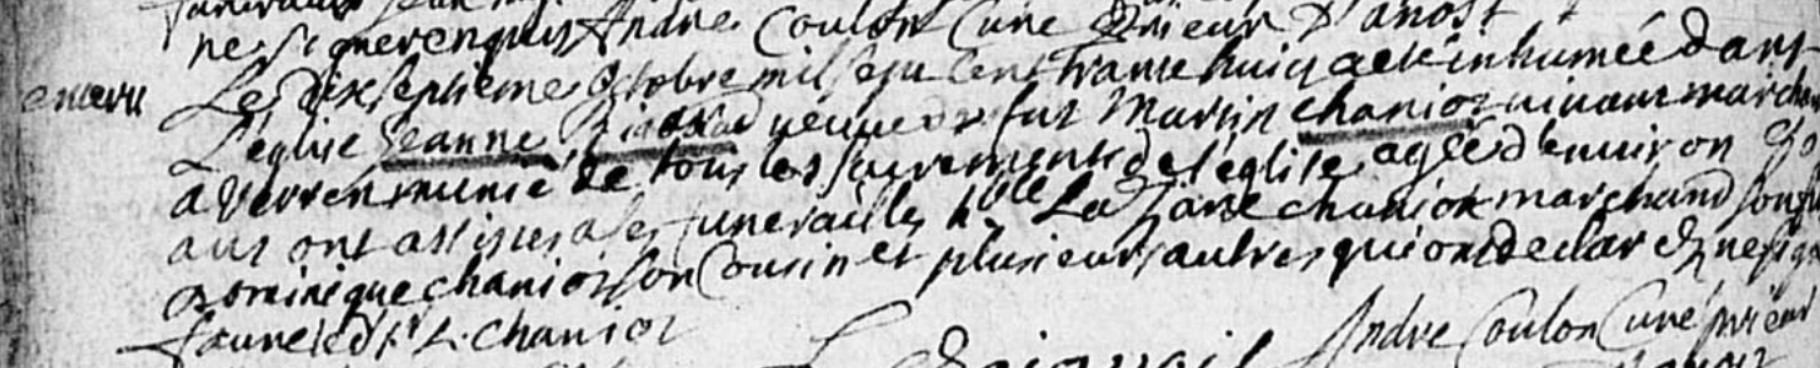 funerailles Jean
ne signer enquis André Coulon Curé & Prieur D'anost
Le dix septieme 8tobre mil sept cent trante huict a eté inhumée dans
L'église Jeanne veuve de fut Martin chaniot vivant marcha
a Verren munie de tous les sacrements de l'église, agée d'environ
ans ont assistes a ses funerailles h.ble Lazare chaniot marchand son fil
Dominique chaniot son Cousin et plusieurs autres qui ont declaré ne sign
sauve led.t L. chaniot
André Coulon Curé prieur